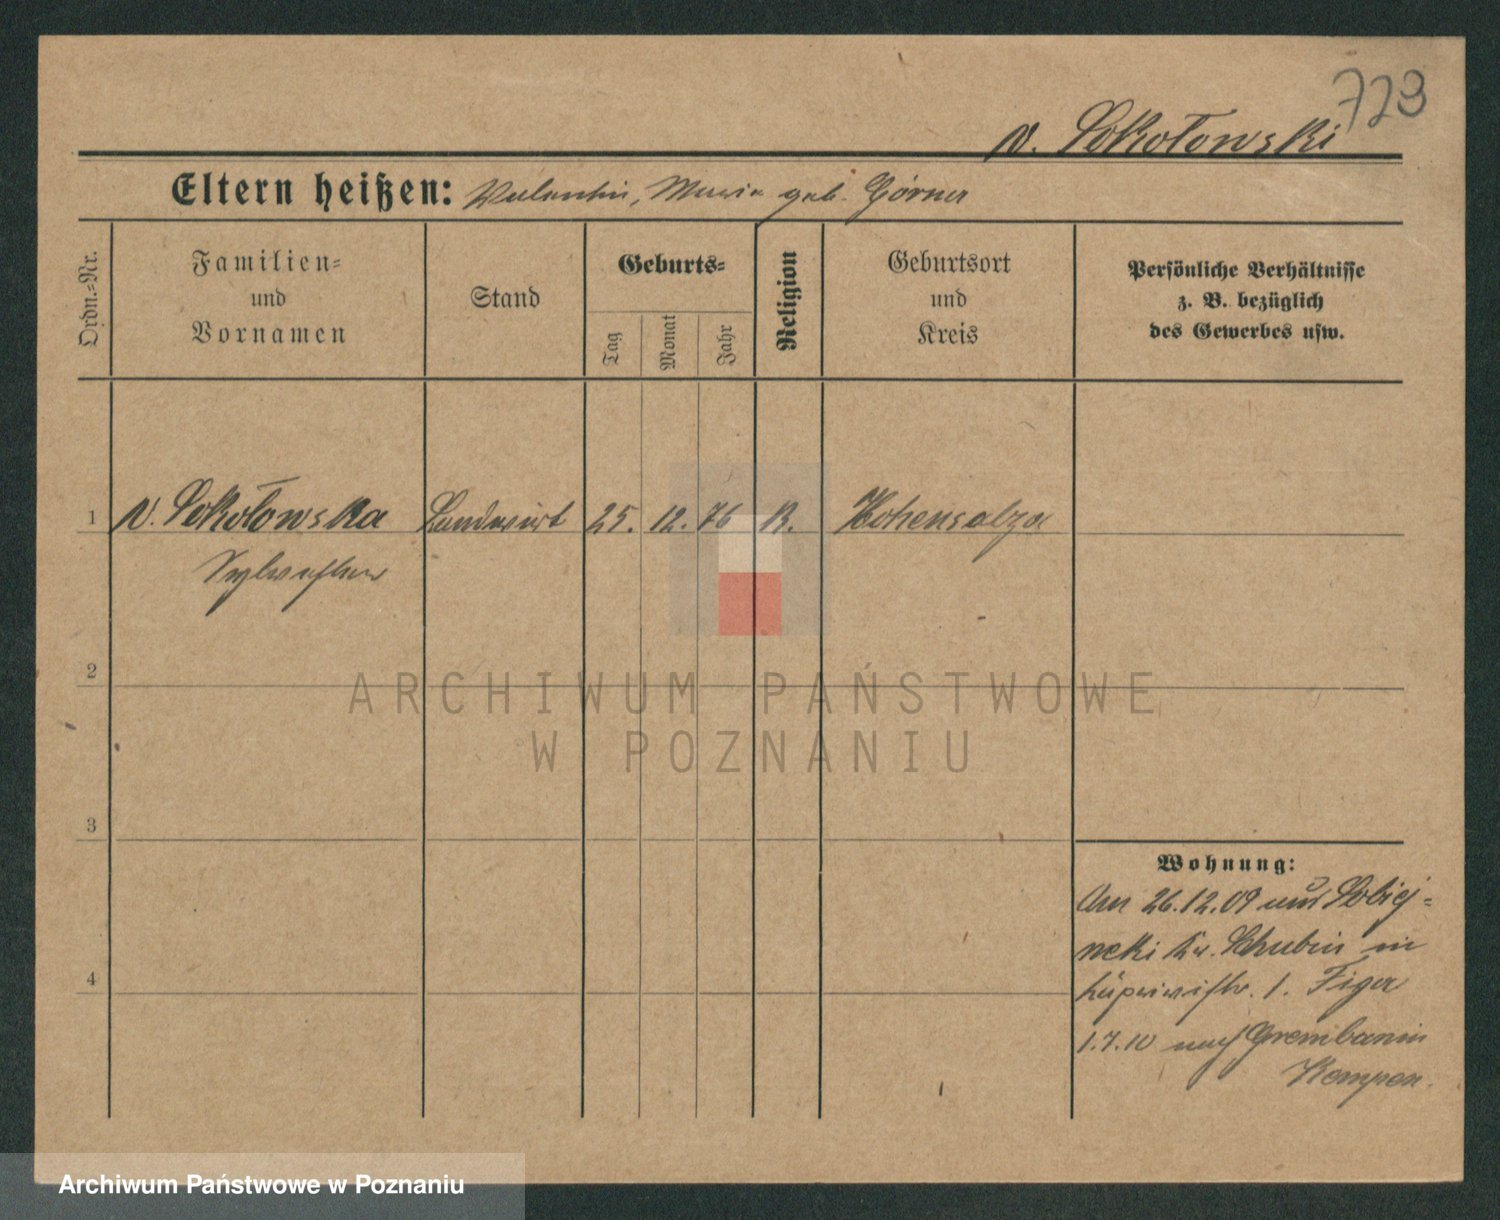 729
v. Sokołowski
Eltern heißen: Valentin, Maria geb. Górna
Ordn.-Nr.
Familien-
und
Vornamen
Stand
Geburts-
Tag
Monat
Jahr
Religion
Geburtsort
und
Kreis
Persönliche Verhältnisse
z. B. bezüglich
des Gewerbes usw.
1 v. Sokołowska Landwirt 25. 12. 76 K. Hohensalza
Sylvester
2
3
4
Wohnung:
Am 26.12.09 aus
Kr. Schubin in
str. 1. Figa
1.7.10 nach Grembanin
Kempen.
ARCHIWUM PAŃSTWOWE
W POZNANIU
Archiwum Państwowe w Poznaniu